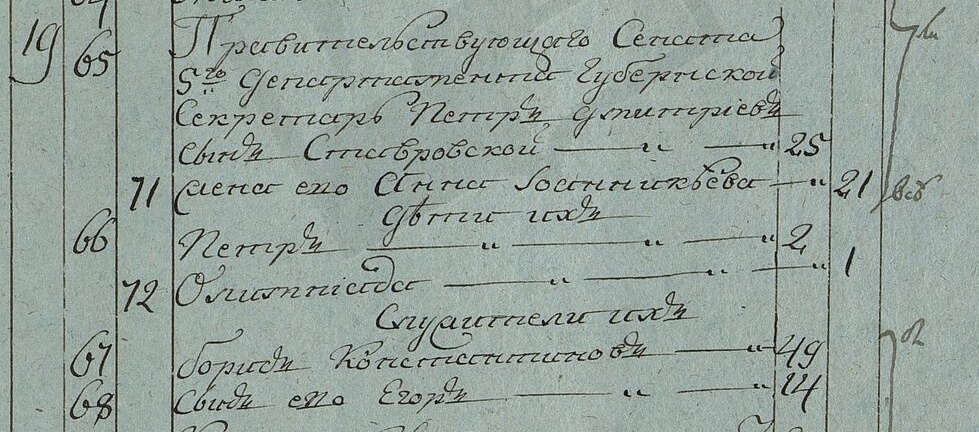 19 65 Правительствующаго Сената
5го Департамента Губернской
Секретарь Петръ Дмитріевъ
сынъ Ставровской — „ — „ 25
71 Жена его Анна Іоанникѣева — „ 21
Дѣти ихъ
66 Петръ — „ — „ — „ 2
72 Олимпіада — „ — „ — „ 1
Служители ихъ
67 Борисъ Константиновъ — „ 49
68 Сынъ его Егоръ — „ — „ 14